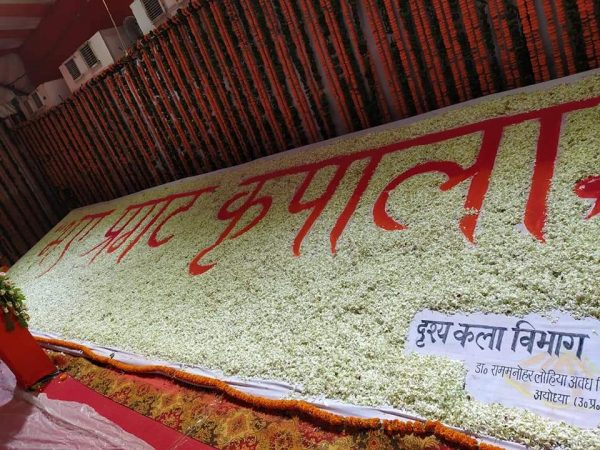 भए प्रगट कृपाला
दृश्य कला विभाग
डा० राममनोहर लोहिया अवध
अयोध्या (उ०प्र०